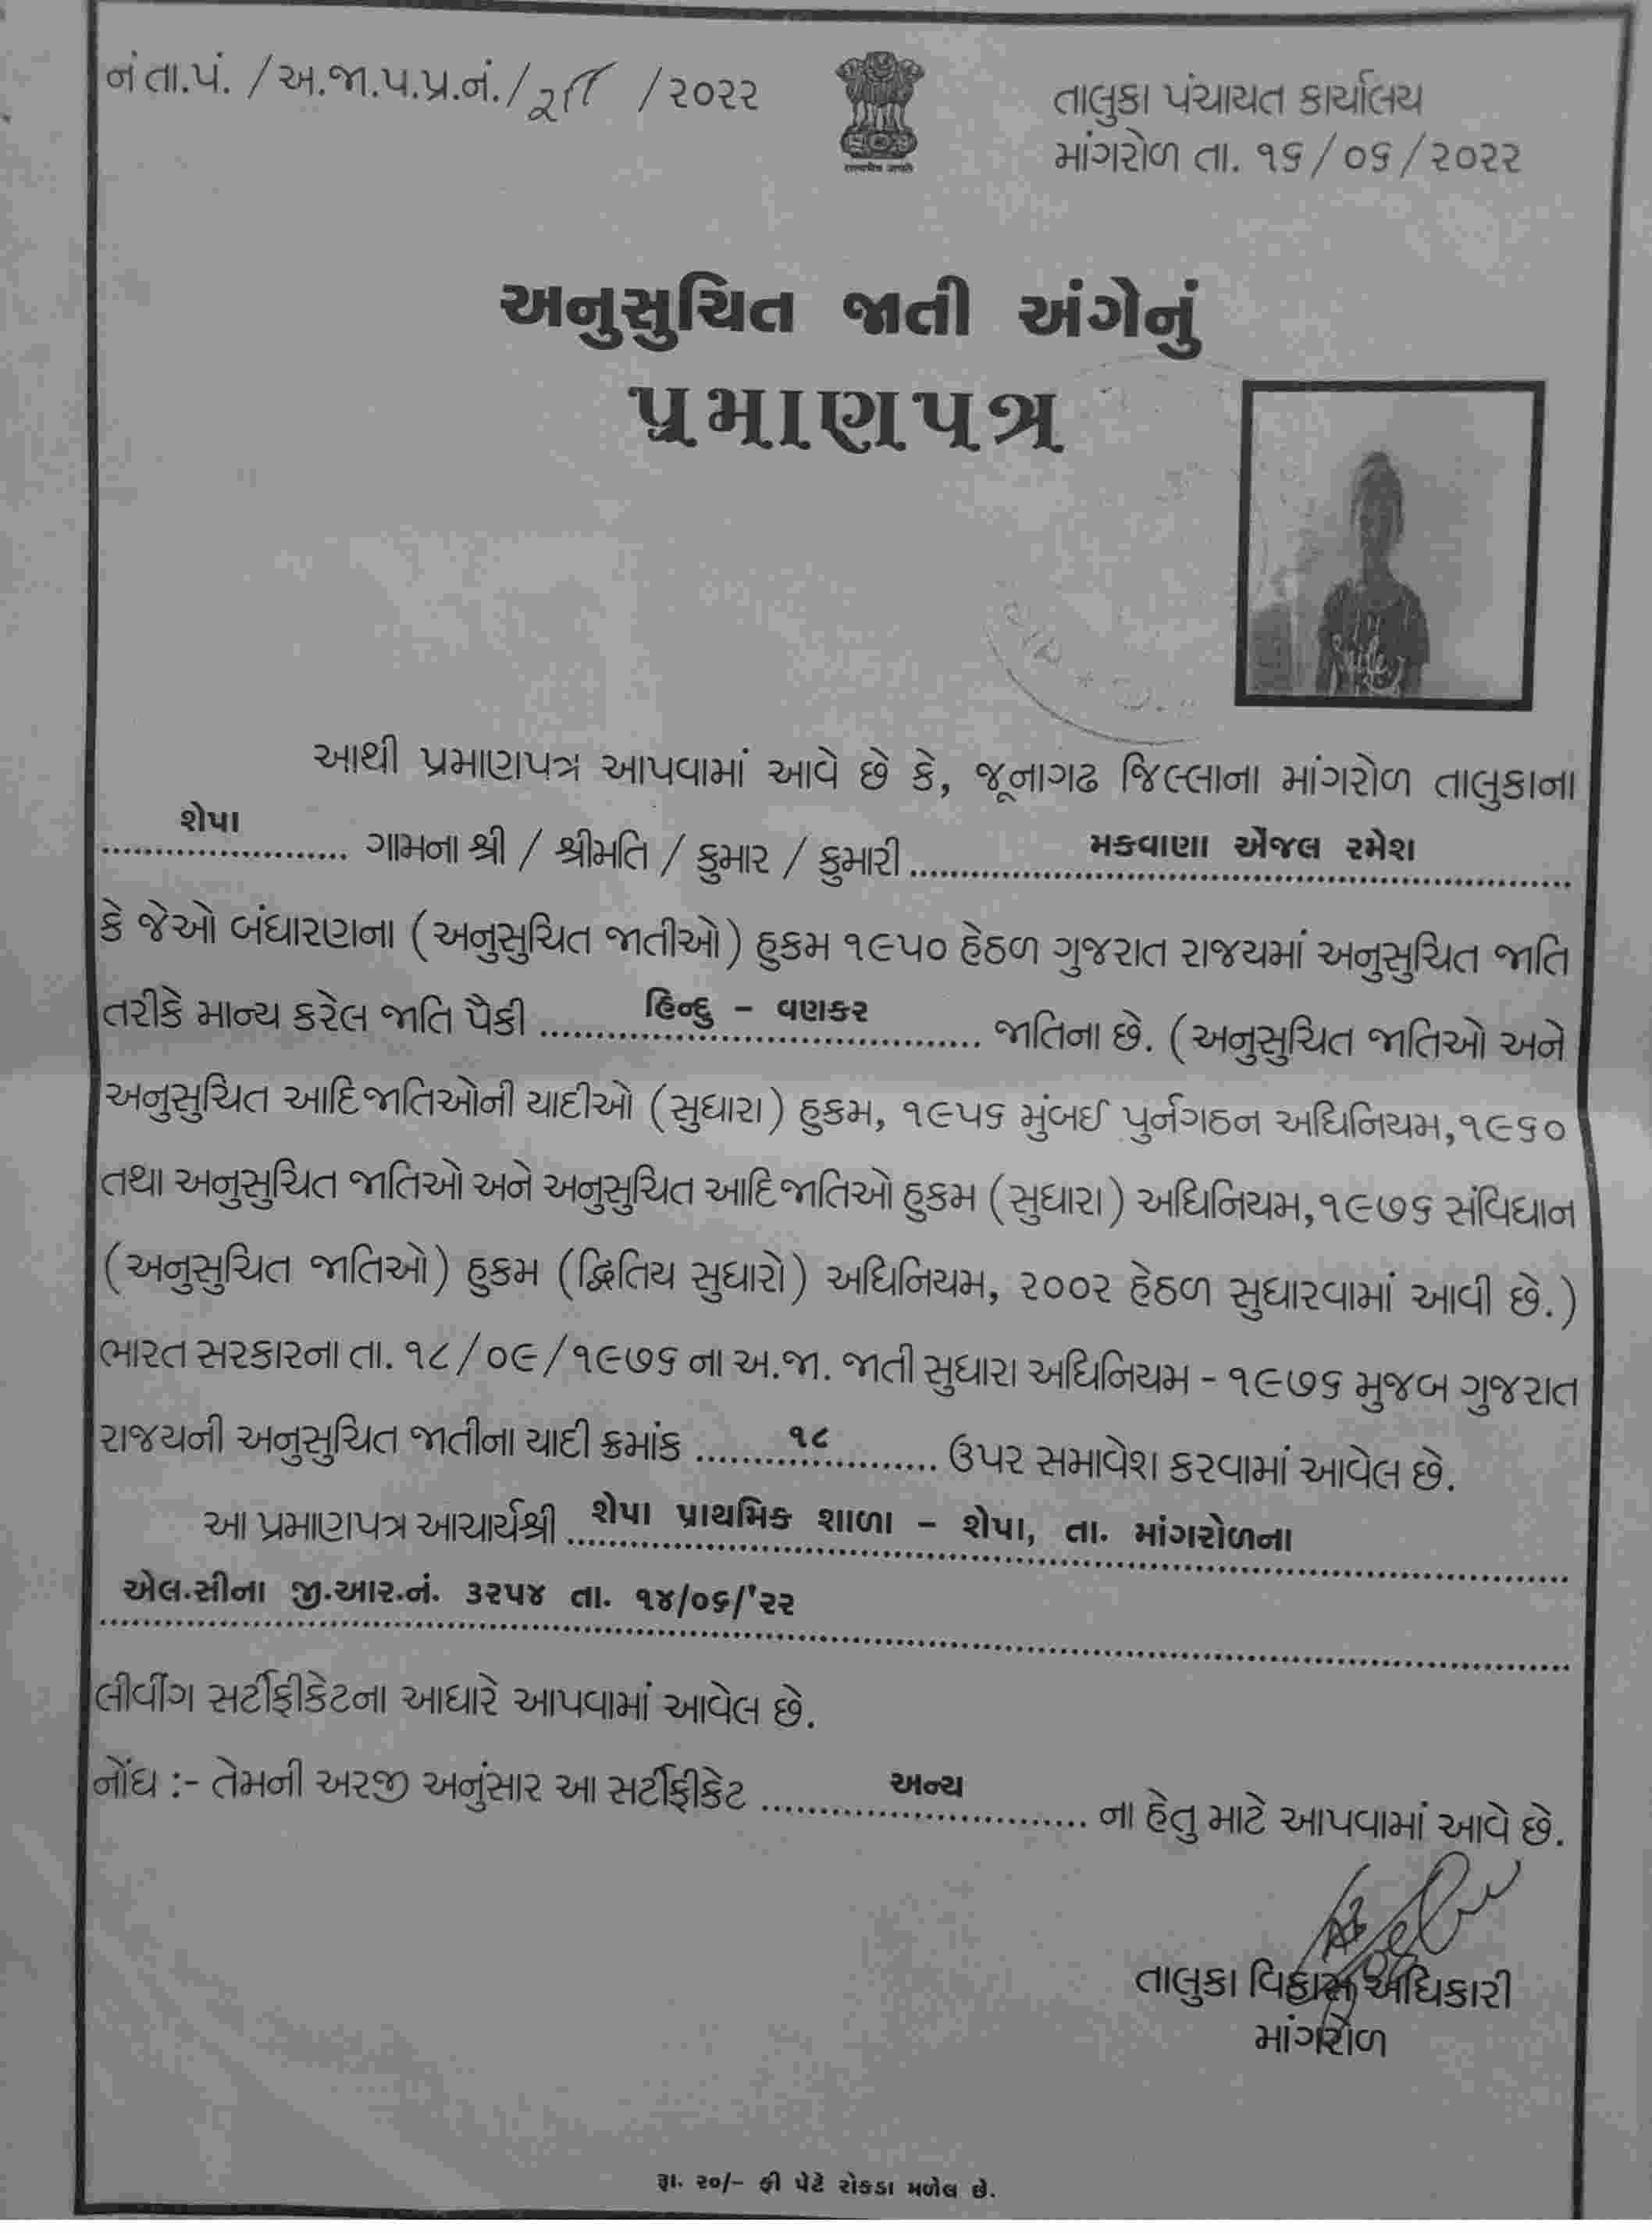 નં તા.પં. /અ.જા.પ.પ્ર.નં./ /૨૦૨૨
તાલુકા પંચાયત કાર્યાલય
માંગરોળ તા. ૧૬/૦૬/૨૦૨૨
અનુસુચિત જાતી અંગેનું
પ્રમાણપત્ર
આથી પ્રમાણપત્ર આપવામાં આવે છે કે, જૂનાગઢ જિલ્લાના માંગરોળ તાલુકાના
શેપા ગામના શ્રી / શ્રીમતિ / કુમાર / કુમારી મકવાણા એંજલ રમેશ
કે જેઓ બંધારણના (અનુસુચિત જાતીઓ) હુકમ ૧૯૫૦ હેઠળ ગુજરાત રાજયમાં અનુસુચિત જાતિ
તરીકે માન્ય કરેલ જાતિ પૈકી હિન્દુ - વણકર જાતિના છે. (અનુસુચિત જાતિઓ અને
અનુસુચિત આદિજાતિઓની યાદીઓ (સુધારા) હુકમ, ૧૯૫૬ મુંબઈ પુર્નગઠન અધિનિયમ,૧૯૬૦
તથા અનુસુચિત જાતિઓ અને અનુસુચિત આદિજાતિઓ હુકમ (સુધારા) અધિનિયમ,૧૯૭૬ સંવિધાન
(અનુસુચિત જાતિઓ) હુકમ (દ્વિતિય સુધારો) અધિનિયમ, ૨૦૦૨ હેઠળ સુધારવામાં આવી છે.)
ભારત સરકારના તા. ૧૮/૦૯/૧૯૭૬ ના અ.જા. જાતી સુધારા અધિનિયમ - ૧૯૭૬ મુજબ ગુજરાત
રાજયની અનુસુચિત જાતીના યાદી ક્રમાંક ૧૮ ઉપર સમાવેશ કરવામાં આવેલ છે.
આ પ્રમાણપત્ર આચાર્યશ્રી શેપા પ્રાથમિક શાળા - શેપા, તા. માંગરોળના
એલ.સીના જી.આર.નં. ૩૨૫૪ તા. ૧૪/૦૬/'૨૨
લીવીંગ સર્ટીફીકેટના આધારે આપવામાં આવેલ છે.
નોંધ :- તેમની અરજી અનુંસાર આ સર્ટીફીકેટ અન્ય ના હેતુ માટે આપવામાં આવે છે.
તાલુકા વિકાસ અધિકારી
માંગરોળ
રૂા. ૨૦/- ફી પેટે રોકડા મળેલ છે.